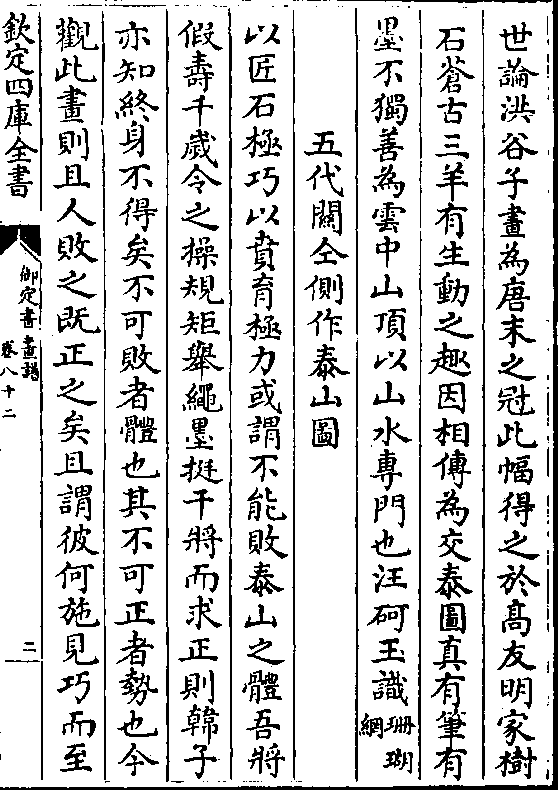 世論洪谷子畫為唐末之冠此幅得之於髙友明家樹
石蒼古三羊有生動之趣因相傳為交泰圖真有筆有
墨不獨善為雲中山頂以山水專門也汪砢玉識珊瑚網
五代關仝側作泰山圖
以匠石極巧以賁育極力或謂不能敗泰山之體吾將
假壽千歲令之操規矩舉繩墨挺干將而求正則韓子
亦知終身不得矣不可敗者體也其不可正者勢也今
觀此畫則且人敗之既正之矣且謂彼何施見巧而至
欽定四庫全書
御定書畫譜
卷八十二
二